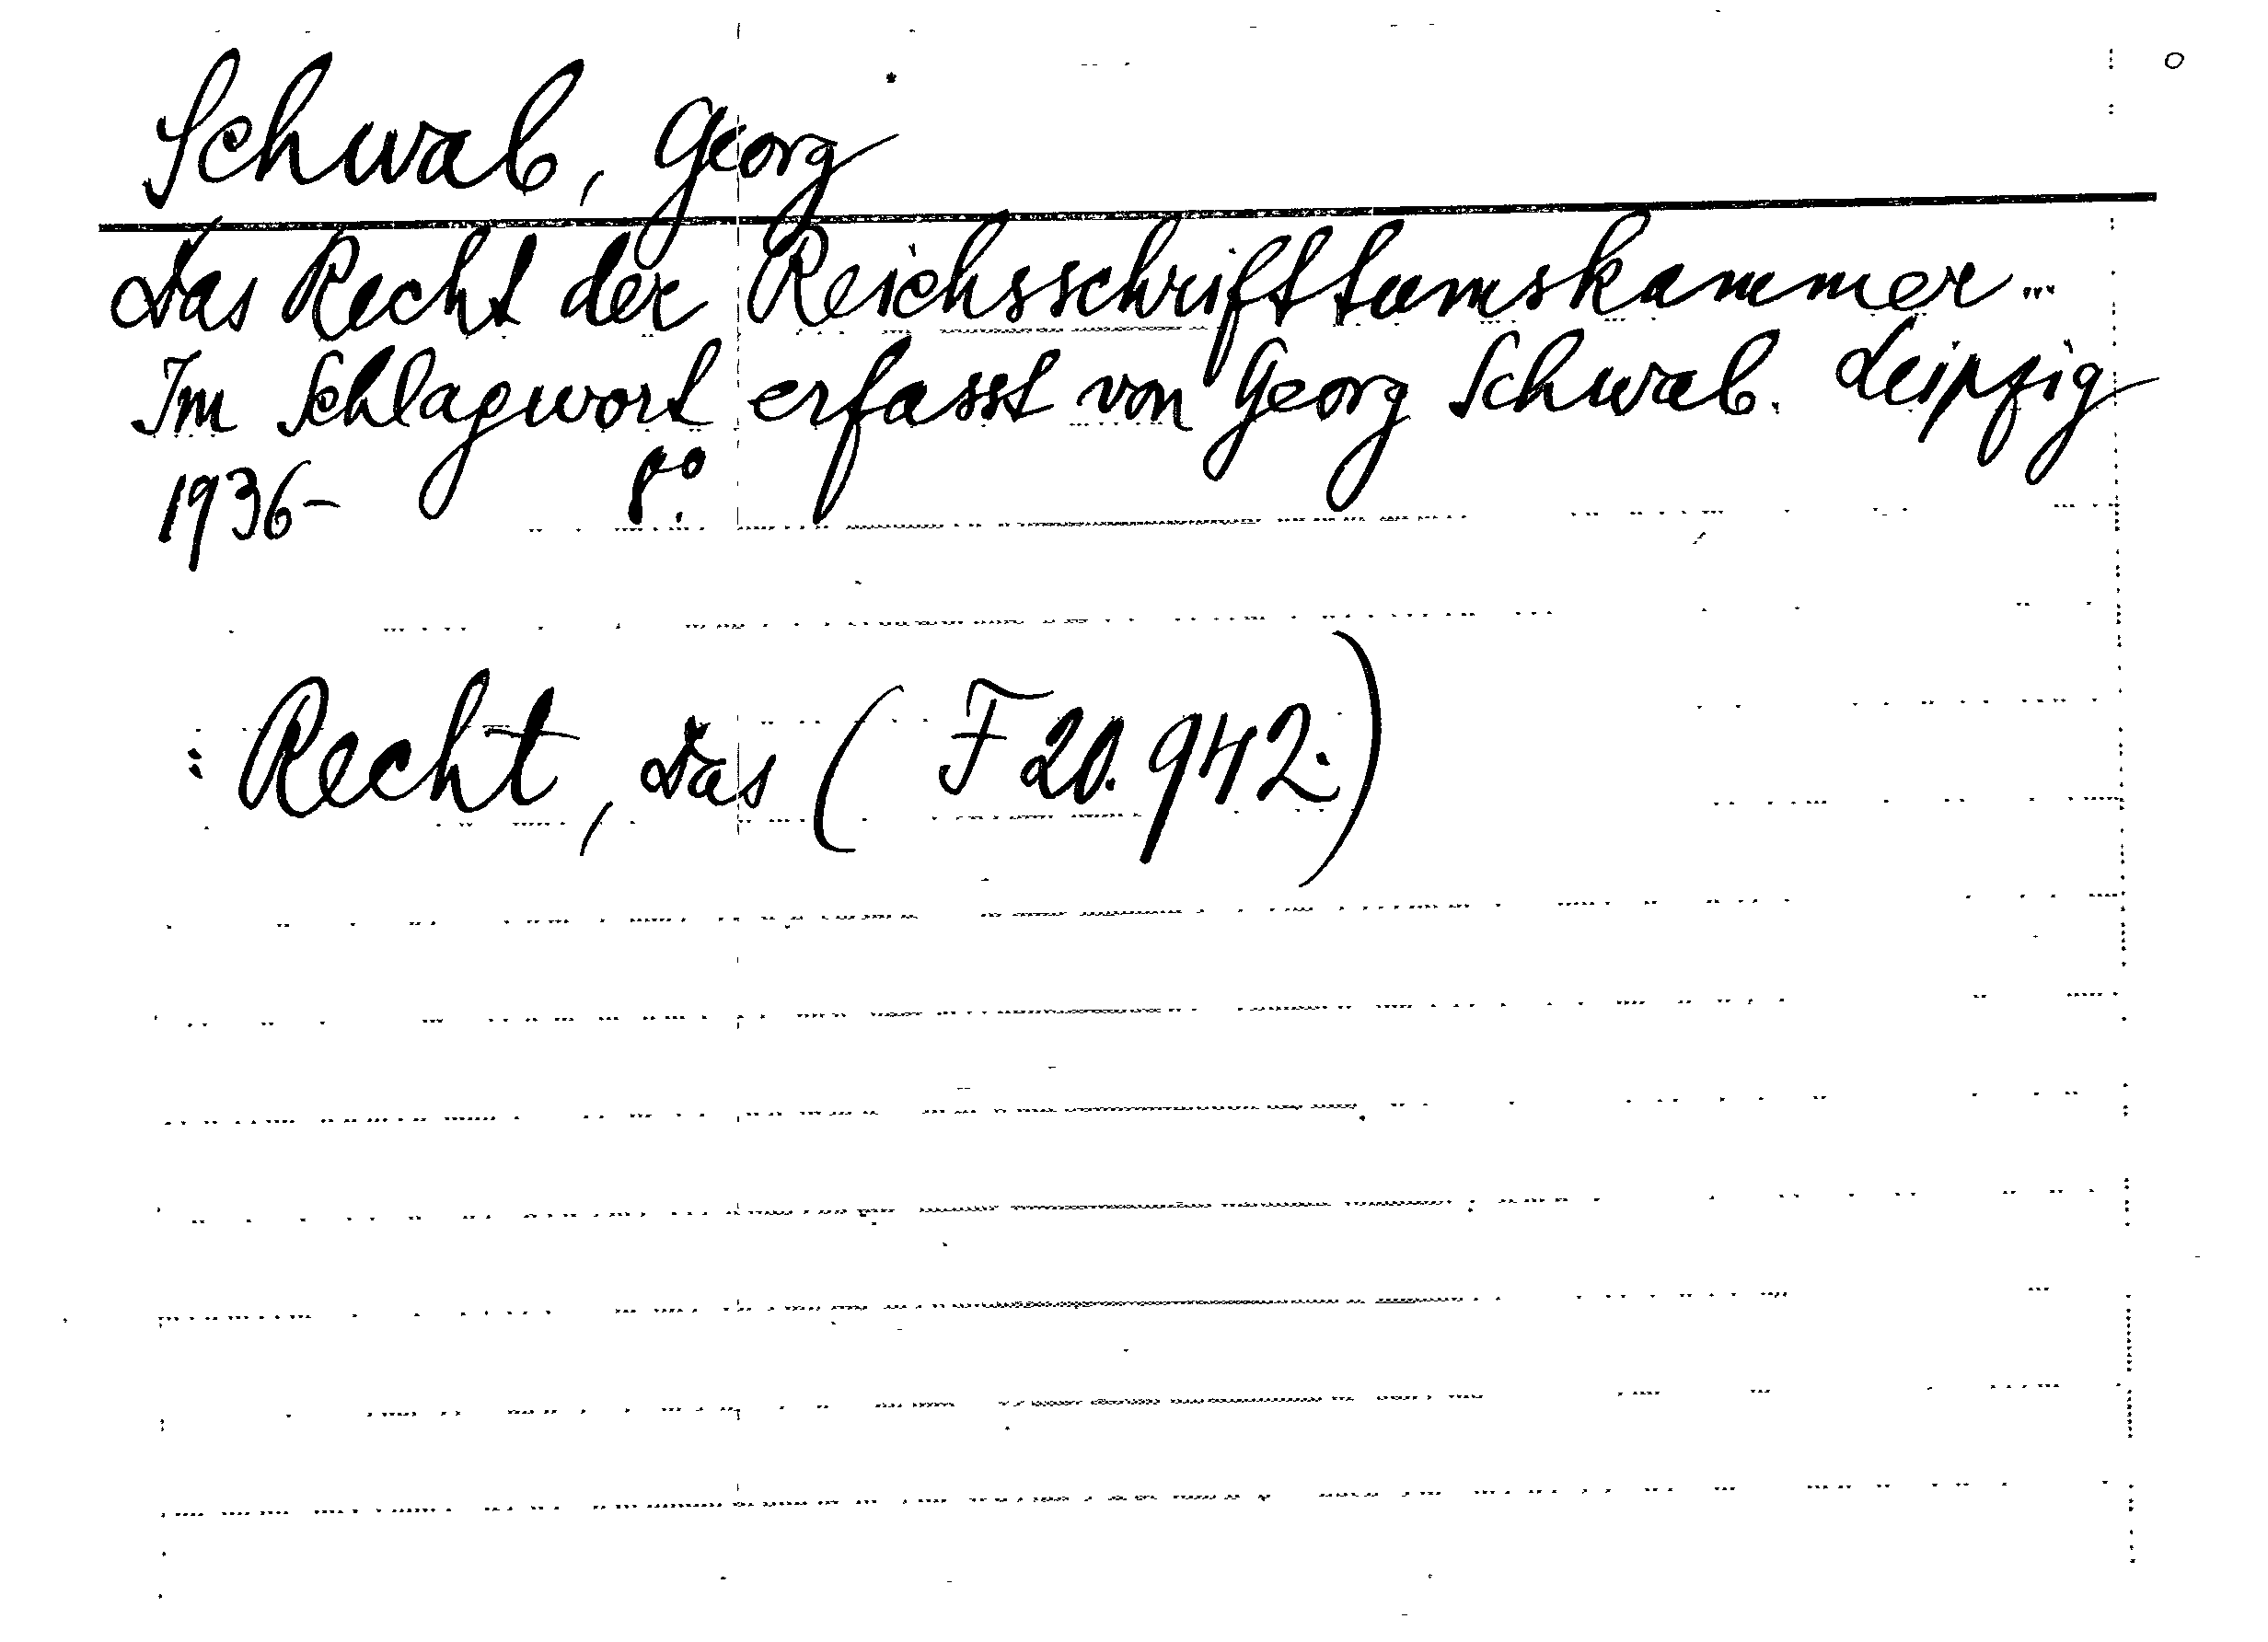 Schwab, Georg
Das Recht der Reichsschrifttumskammer...
Im Schlagwort erfasst von Georg Schwab. Leipzig
1936- 8°.
: Recht, Das ( F 20.942.)